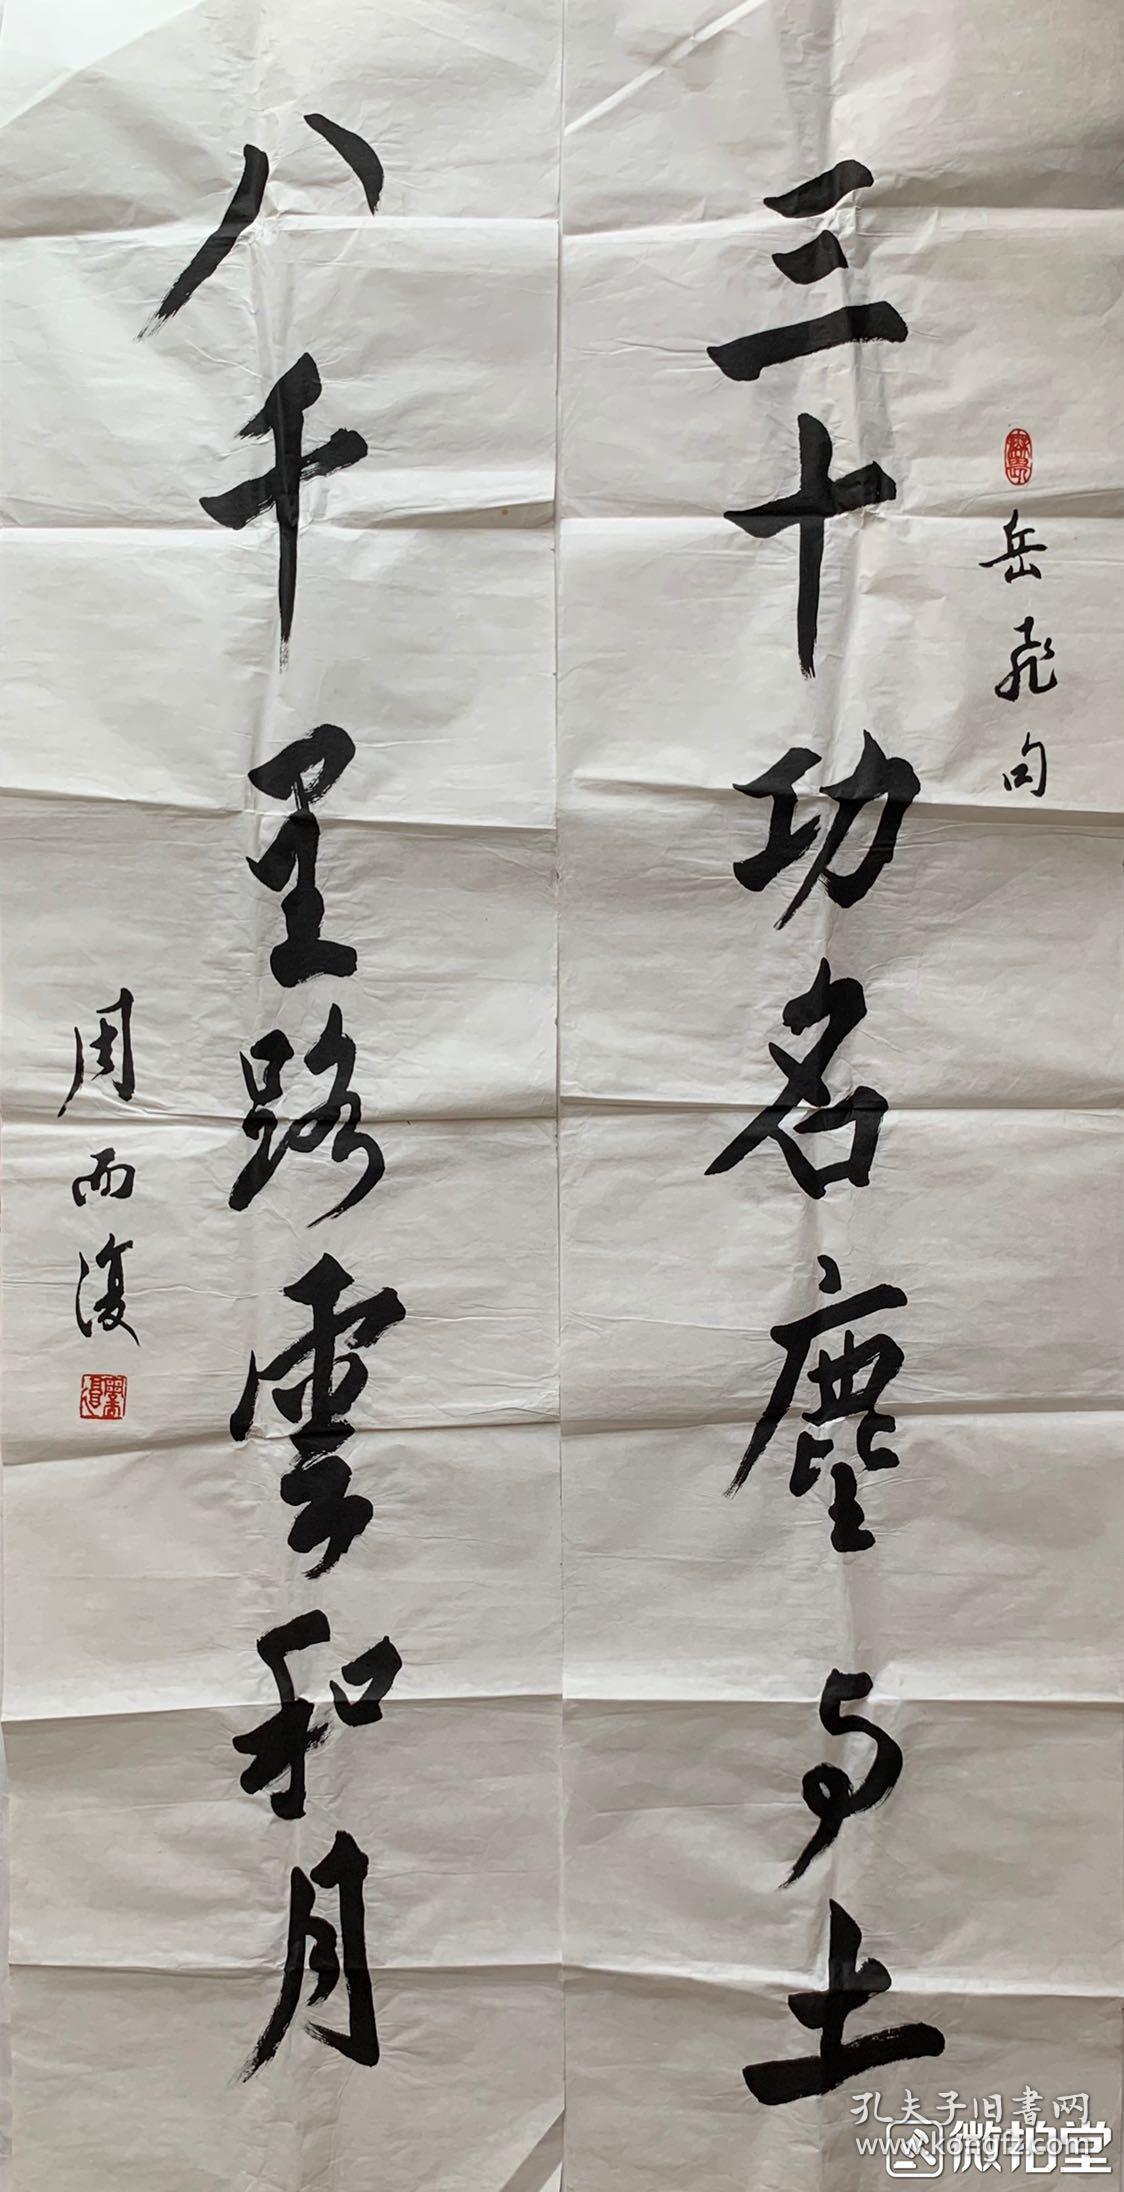 岳飛句
三十功名塵与土
八千里路雲和月
周而復
孔夫子旧書网
www.kongfz.com
微拍堂